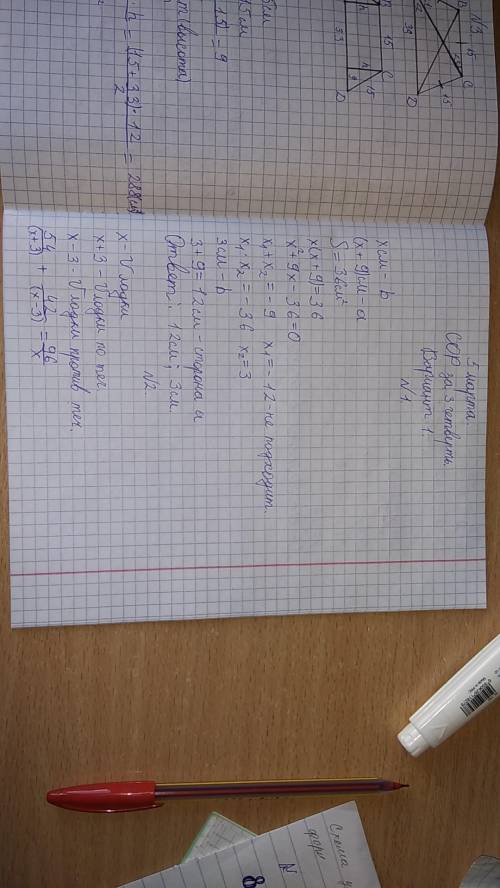 5 марта.
СОР за 3 четверть
Вариант 1.
N1
x см - b
(x + 9)см - a
S = 36см²
x(x+9)=36
x² + 9x - 36 = 0
x₁ + x₂ = -9 x₁ = -12 - не подходит.
x₁ · x₂ = -36 x₂ = 3
3см - b
3 + 9 = 12см - сторона a
Ответ: 12см; 3см.
N2
x - V лодки
x + 3 - V лодки по теч
x - 3 - V лодки против теч.
54/(x+3) + 42/(x-3) = 96/x
N3.
15
C
15
39
D
15
h
C
33
9
15
D
15) = 9
(высота)
· h = (15 + 33) · 12 / 2 = 288см
Схема
N
8